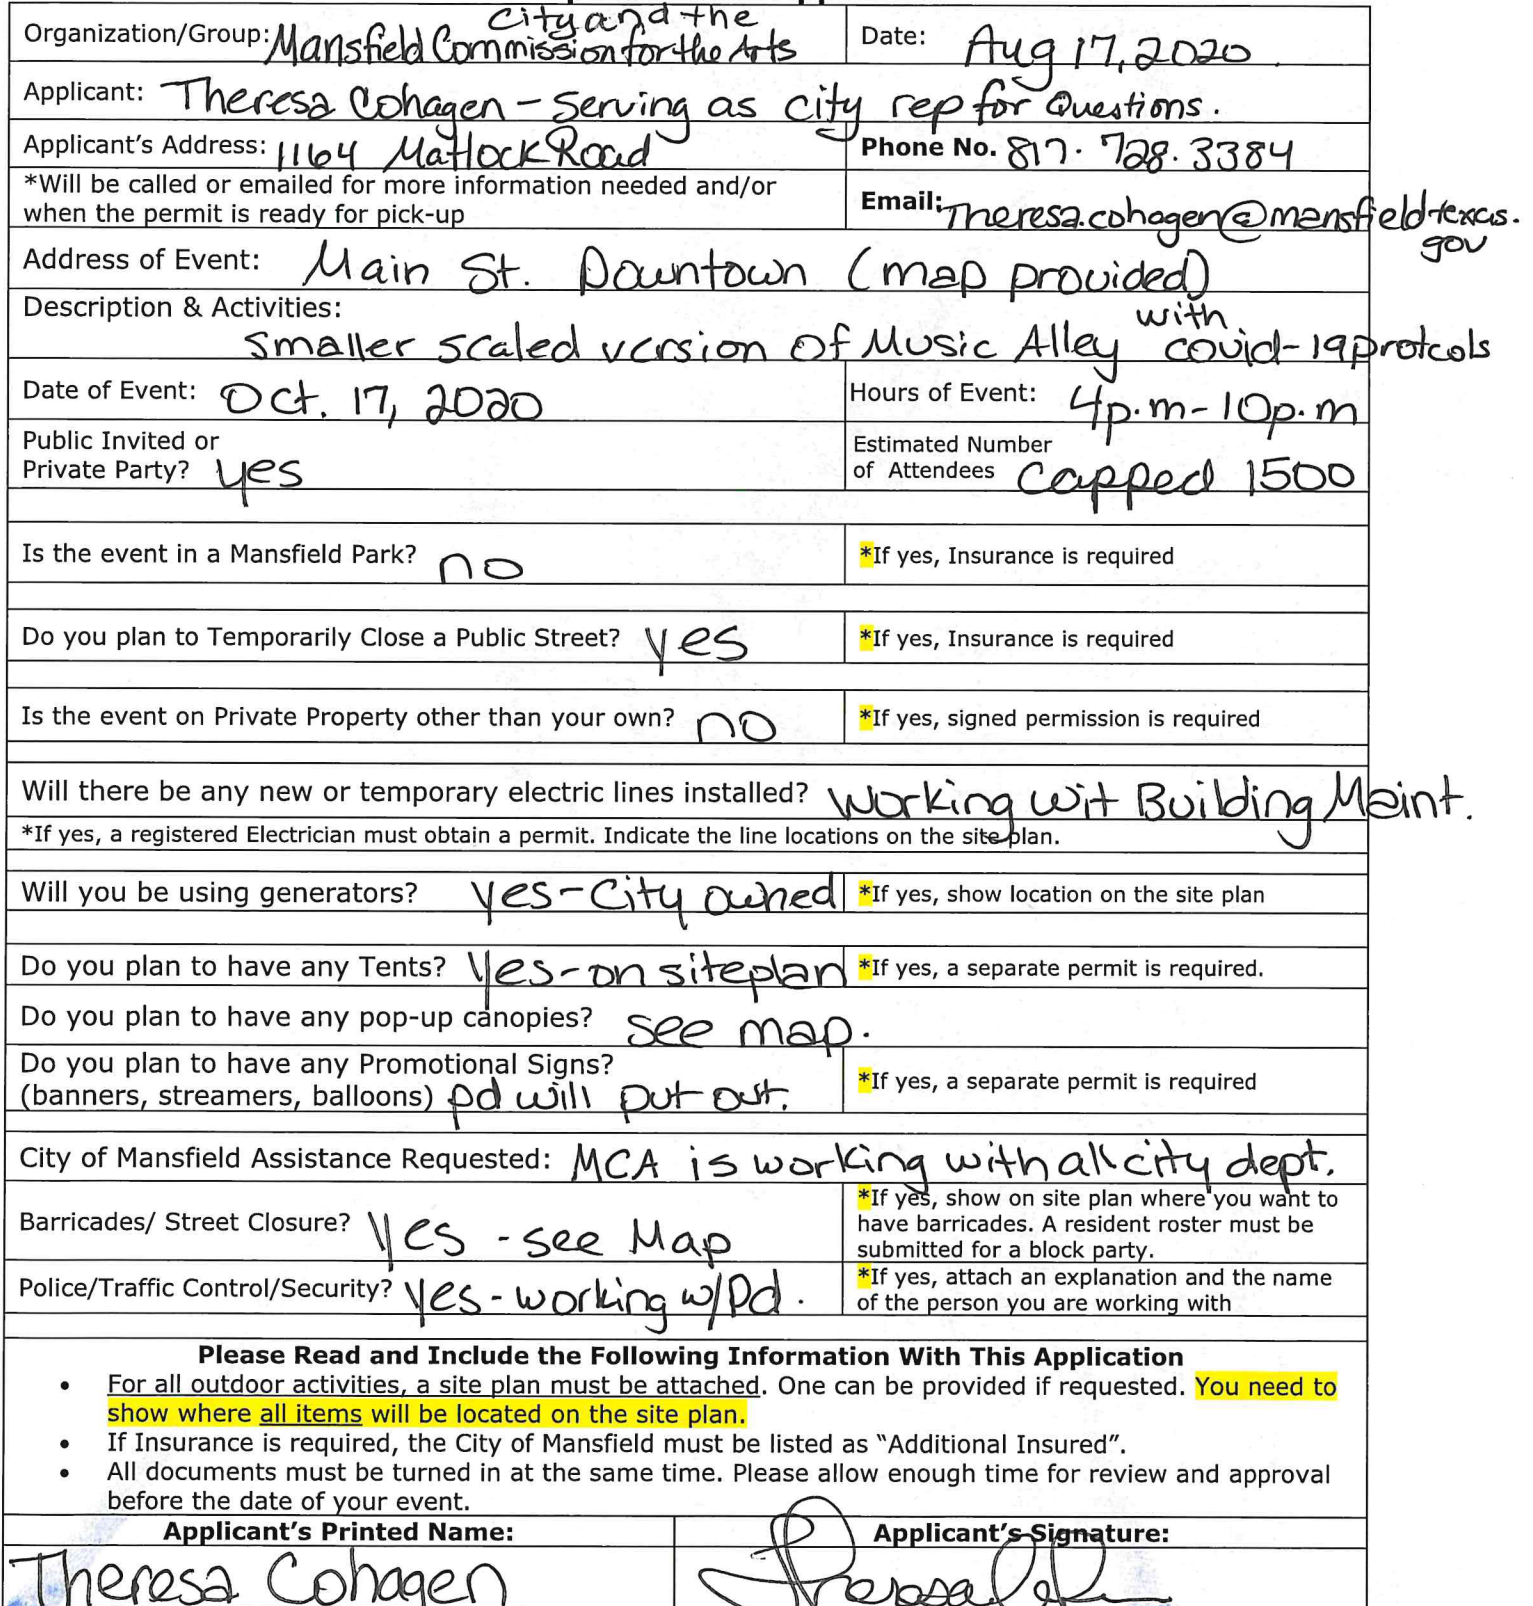 city and the
Organization/Group: Mansfield Commission for the Arts Date: Aug 17, 2020.
Applicant: Theresa Cohagen - Serving as city rep for Questions.
Applicant's Address: 1164 Matlock Road Phone No. 817. 728. 3384
*Will be called or emailed for more information needed and/or
when the permit is ready for pick-up
Email: Theresa.cohagen@mansfieldtexas.
gov
Address of Event: Main St. Downtown (map provided)
Description & Activities:
with
smaller scaled version of Music Alley covid-19 protcols
Date of Event: Oct. 17, 2020 Hours of Event: 4p.m-10p.m
Public Invited or
Private Party? yes
Estimated Number
of Attendees capped 1500
Is the event in a Mansfield Park? no *If yes, Insurance is required
Do you plan to Temporarily Close a Public Street? yes *If yes, Insurance is required
Is the event on Private Property other than your own? no *If yes, signed permission is required
Will there be any new or temporary electric lines installed? Working wit Building Maint.
*If yes, a registered Electrician must obtain a permit. Indicate the line locations on the site plan.
Will you be using generators? yes-City owned *If yes, show location on the site plan
Do you plan to have any Tents? Yes-on siteplan *If yes, a separate permit is required.
Do you plan to have any pop-up canopies? see map.
Do you plan to have any Promotional Signs?
(banners, streamers, balloons) pd will put out. *If yes, a separate permit is required
City of Mansfield Assistance Requested: MCA is working with all city dept.
Barricades/ Street Closure? Yes - see Map
*If yes, show on site plan where you want to
have barricades. A resident roster must be
submitted for a block party.
Police/Traffic Control/Security? Yes-working w/Pd.
*If yes, attach an explanation and the name
of the person you are working with
Please Read and Include the Following Information With This Application
• For all outdoor activities, a site plan must be attached. One can be provided if requested. You need to
show where all items will be located on the site plan.
• If Insurance is required, the City of Mansfield must be listed as "Additional Insured".
• All documents must be turned in at the same time. Please allow enough time for review and approval
before the date of your event.
Applicant's Printed Name: Applicant's Signature:
Theresa Cohagen Theresa